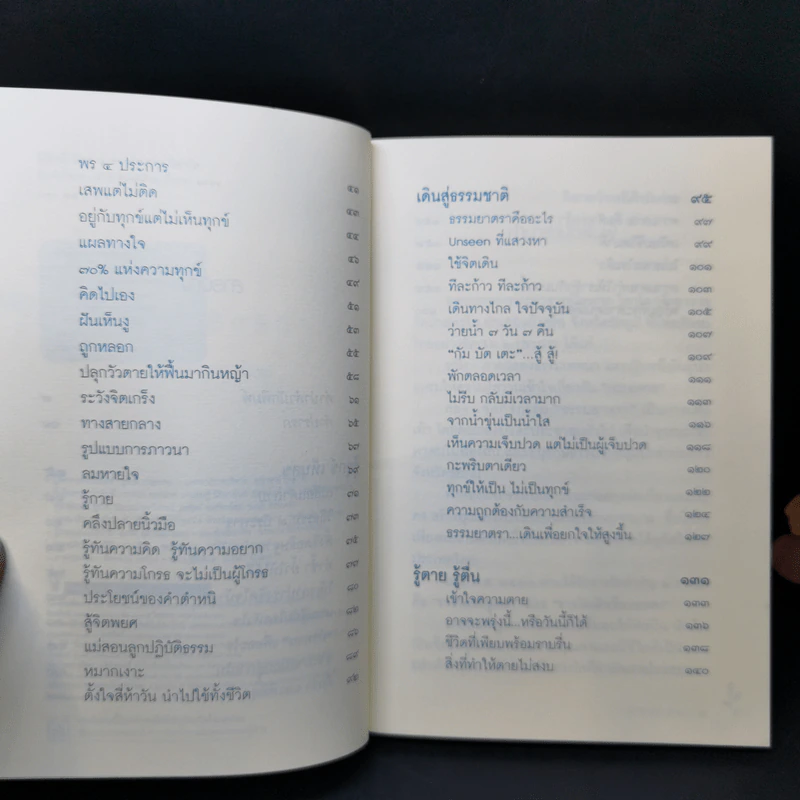 พร ๔ ประการ ๔๑
เสพแต่ไม่ติด ๔๓
อยู่กับทุกข์แต่ไม่เห็นทุกข์ ๔๔
แผลทางใจ ๔๖
๗๐% แห่งความทุกข์ ๔๙
คิดไปเอง ๕๑
ฝันเห็นงู ๕๓
ถูกหลอก ๕๕
ปลุกวัวตายให้ฟื้นมากินหญ้า ๕๘
ระวังจิตเกร็ง ๖๑
ทางสายกลาง ๖๕
รูปแบบการภาวนา
ลมหายใจ ๖๙
รู้กาย ๗๑
คลึงปลายนิ้วมือ ๗๓
รู้ทันความคิด รู้ทันความอยาก ๗๕
รู้ทันความโกรธ จะไม่เป็นผู้โกรธ ๗๗
ประโยชน์ของคำตำหนิ ๘๐
สู้จิตพยศ ๘๒
แม่สอนลูกปฏิบัติธรรม ๘๗
หมากเงาะ ๘๙
ตั้งใจสี่ห้าวัน นำไปใช้ทั้งชีวิต ๙๒
เดินสู่ธรรมชาติ ๙๕
ธรรมยาตราคืออะไร ๙๗
Unseen ที่แสวงหา ๙๙
ใช้จิตเดิน ๑๐๑
ทีละก้าว ทีละก้าว ๑๐๓
เดินทางไกล ใจปัจจุบัน ๑๐๕
ว่ายน้ำ ๗ วัน ๗ คืน ๑๐๗
"กัม บัต เตะ"...สู้ สู้! ๑๐๙
พักตลอดเวลา ๑๑๑
ไม่รีบ กลับมีเวลามาก ๑๑๓
จากน้ำขุ่นเป็นน้ำใส ๑๑๖
เห็นความเจ็บปวด แต่ไม่เป็นผู้เจ็บปวด ๑๑๘
กะพริบตาเดียว ๑๒๐
ทุกข์ให้เป็น ไม่เป็นทุกข์ ๑๒๒
ความถูกต้องกับความสำเร็จ ๑๒๔
ธรรมยาตรา...เดินเพื่อยกใจให้สูงขึ้น ๑๒๗
รู้ตาย รู้ตื่น ๑๓๑
เข้าใจความตาย ๑๓๓
อาจจะพรุ่งนี้...หรือวันนี้ก็ได้ ๑๓๖
ชีวิตที่เพียบพร้อมราบรื่น ๑๓๘
สิ่งที่ทำให้ตายไม่สงบ ๑๔๐